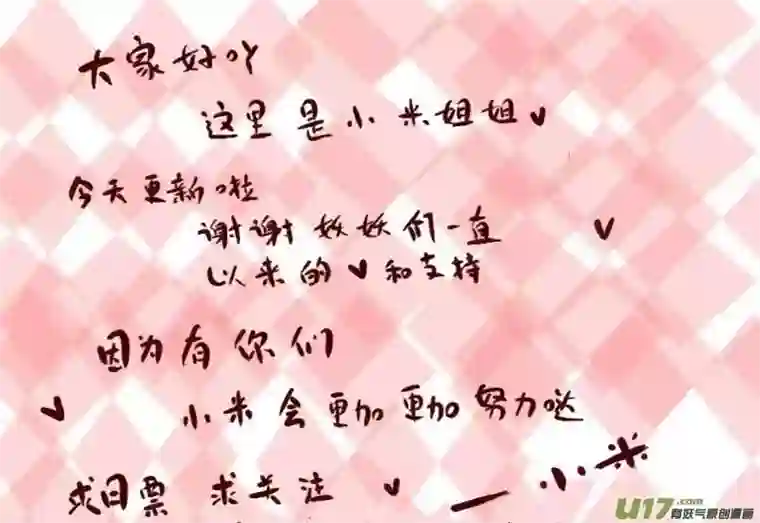 大家好吖
这里是小米姐姐♥
今天更新啦
谢谢妖妖们一直 ♥
以来的♥和支持
因为有你们
♥ 小米会更加更加努力哒
求日票 求关注 ♥ —小米
U17.com
有妖气原创漫画